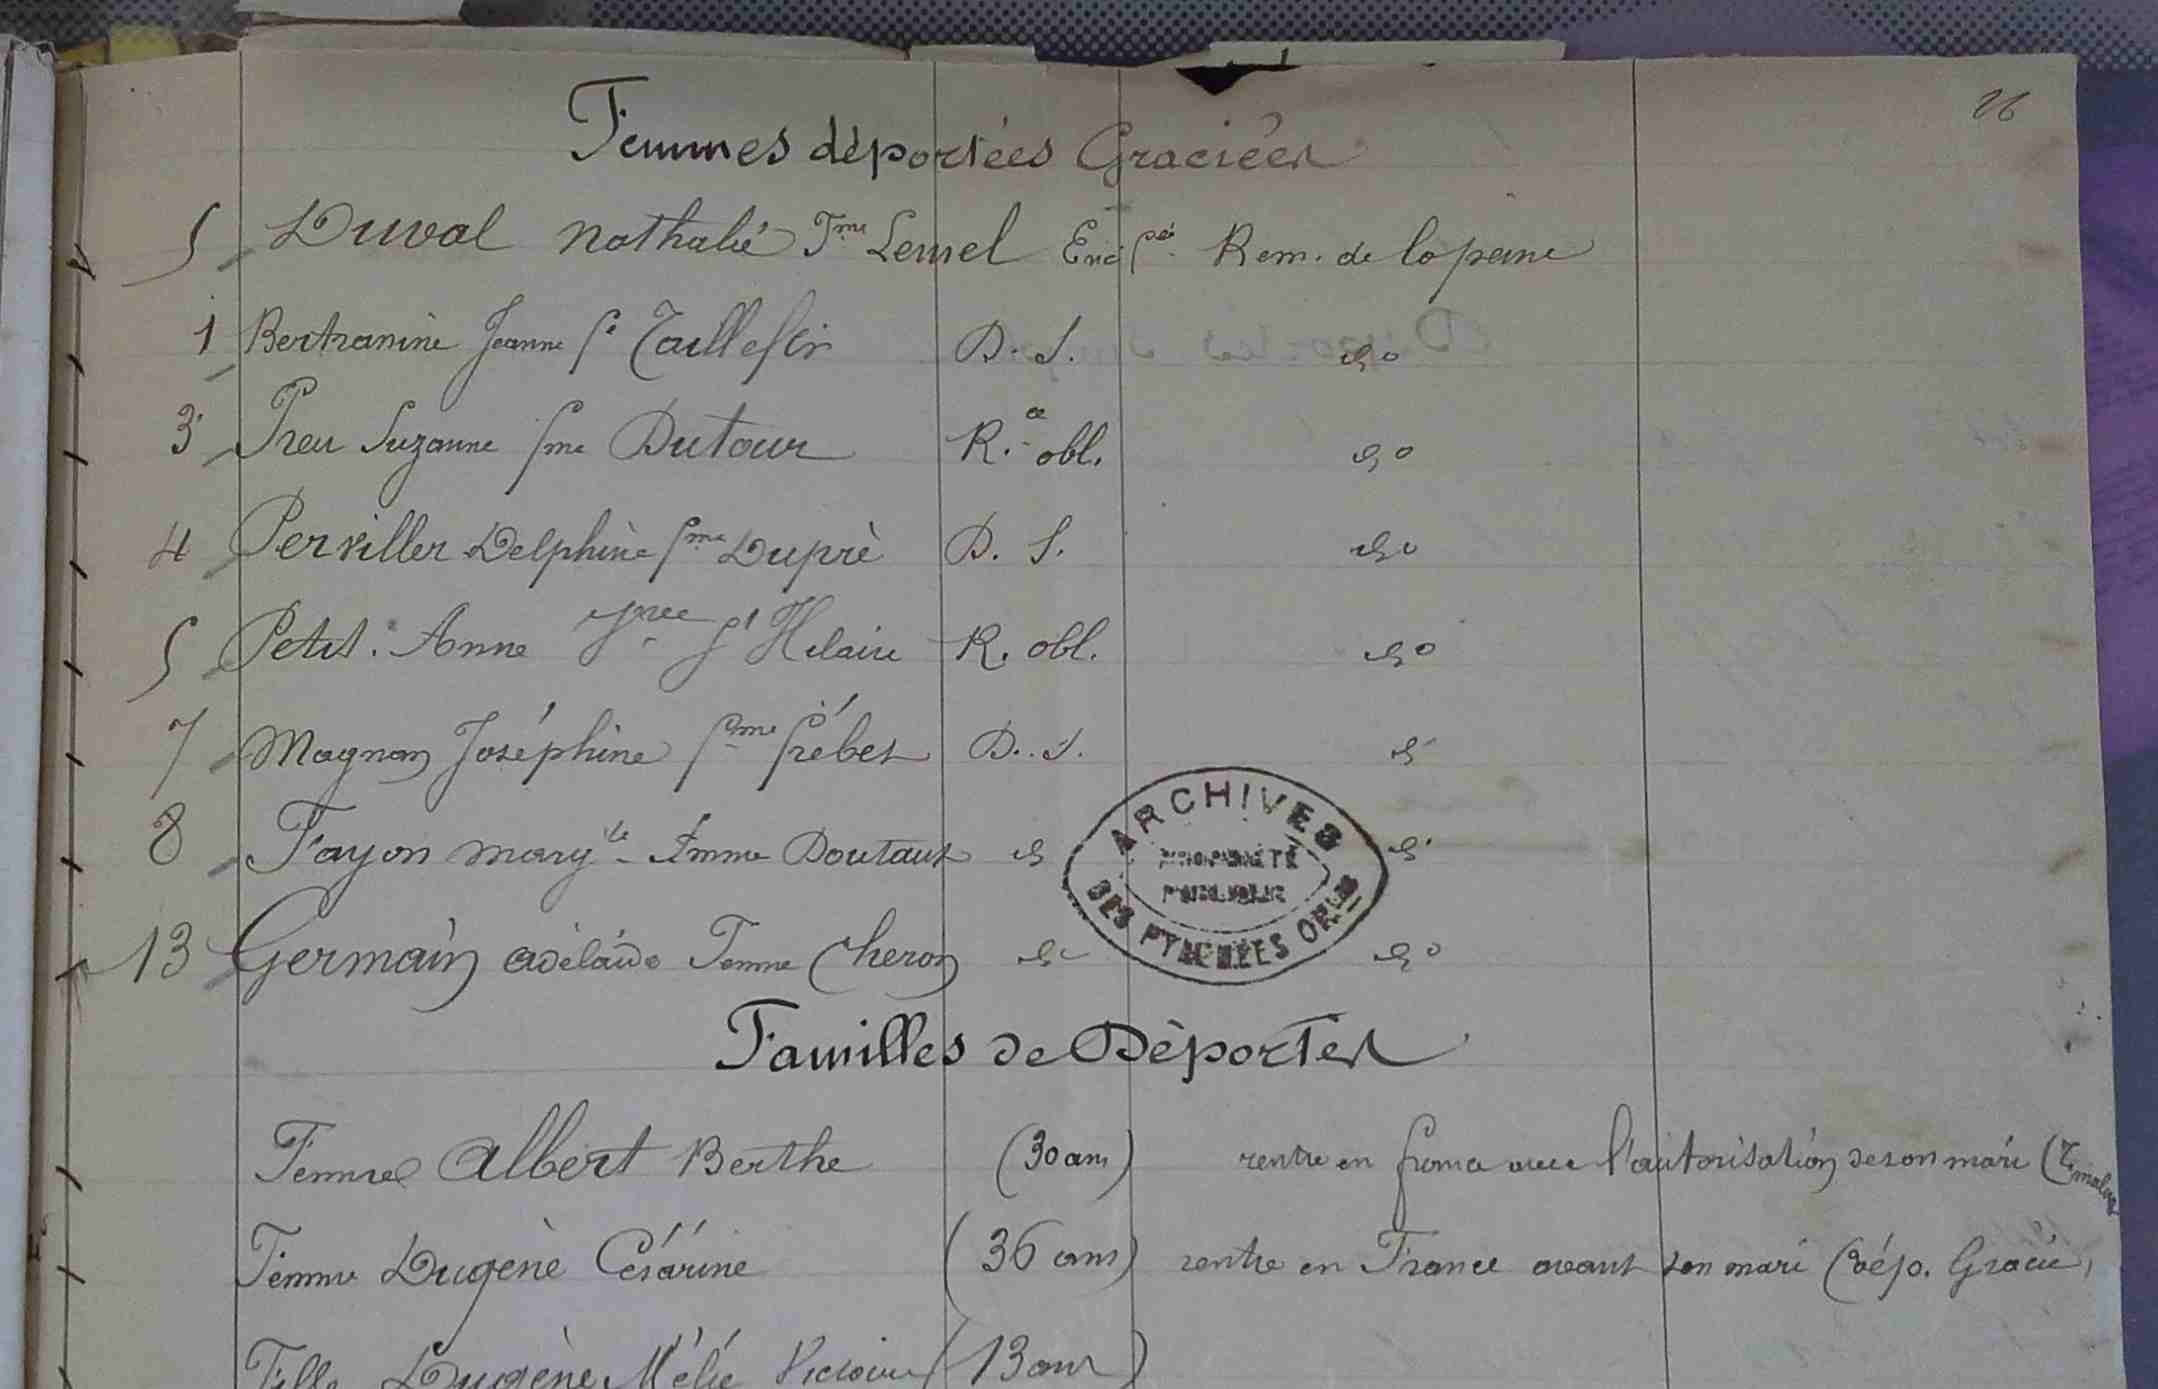 26
Femmes déportées Graciées
5 Duval Nathalie Fme Lemel Enc. pée Rem. de la peine
1 Bertranine Jeanne fe Taillefer D. S. do
3 Preu Suzanne fme Dutour R.ce obl. do
4 Perviller Delphine fme Dupré D. S. do
5 Petit. Anne St Hilaire R. obl. do
7 Magnan Joséphine fme D. S. do
8 Fayon femme Doutaux do do
13 Germain adélaïde Femme Cheron do do
ARCHIVES
PROPRIÉTÉ
PUBLIQUE
DES PYRÉNÉES ORLES
Familles de Déportés
Femme Albert Berthe (30 ans) rentre en france avec l'autorisation de son mari
Femme Dugène Césarine (36 ans) rentre en France avant son mari (Dép. Gracié,
Fille Dugène Mélie Victoire (13 ans)